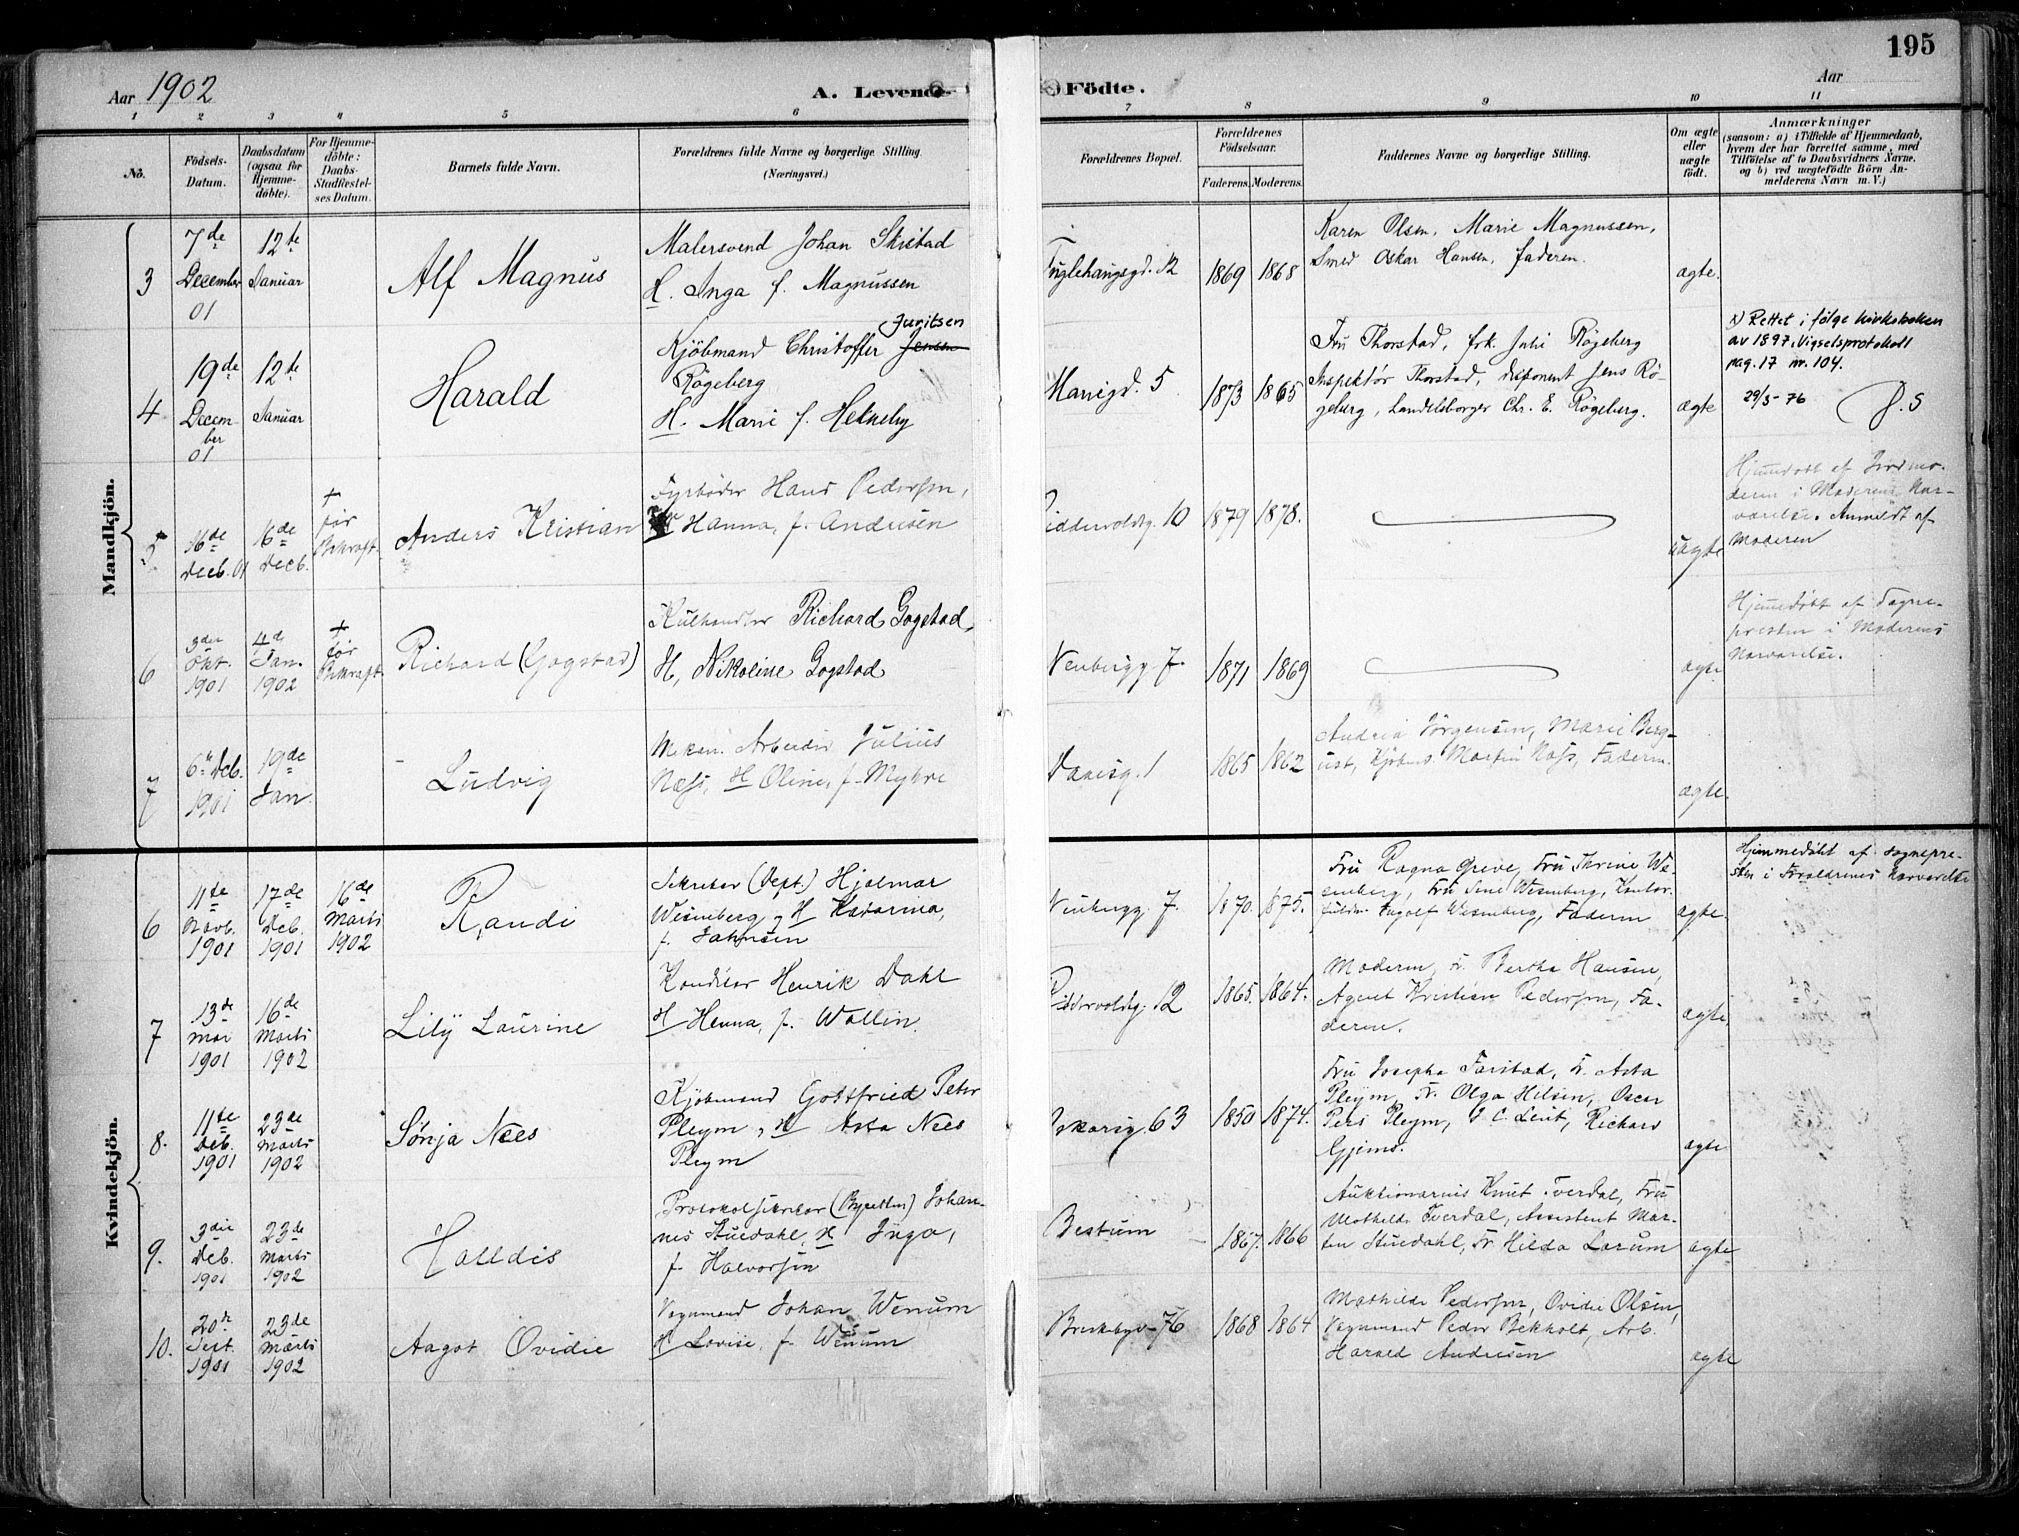 195
Aar 1902
A. Levende Födte.
Aar
1 2 3 4 5 6 7 8 9 10 11
No.
Födsels-
Datum.
Daabsdatum
(ogsaa for
Hjemme-
döbte).
For Hjemme-
döbte:
Daabs-
Stadfæstel-
ses Datum.
Barnets fulde Navn.
Forældrenes fulde Navne og borgerlige Stilling.
(Næringsvei.)
Forældrenes Bopæl.
Forældrenes
Födselsaar.
Faderens. Moderens.
Faddernes Navne og borgerlige Stilling.
Om ægte
eller
uægte
födt.
Anmærkninger
(saasom: a) i Tilfælde af Hjemmedaab,
hvem der har forrettet samme, med
Tilföielse af to Daabsvidners Navne,
og b) ved uægtefödte Börn An-
melderens Navn m. V.)
Mandkjön.
3
7de
December
01
12te
Januar
Alf Magnus
Malersvend Johan Skistad
H. Inga f. Magnussen
Fuglehaugsgd. 12
1869 1868
Karen Olsen, Marie Magnussen,
Smed Oskar Hansen, faderen.
ægte.
4
19de
Decem-
ber
01
12te
Januar
Harald
Juritsen
Kjöbmand Christoffer Jensen
Rögeberg
H. Marie f. Helneby
Mariegd. 5
1873 1865
Fru Thorstad, frk. Julie Rögeberg
Inspektör Thorstad, disponent Jens Rö-
geberg, Landelsborger Chr. E. Rögeberg.
ægte
x) Rettet i følge kirkeboken
av 1897, Vigselsprotokoll
pag. 17 nr. 104.
29/3-76 P.S
5
16de
Decb. 01
16de
Decb.
†
før
Bekræft.
Anders Kristian
Fyrbøder Hans Pedersen,
Hanna, f. Andresen
Riddervoldsg. 10
1879 1878.
uægte
Hjemmedøbt af Jordmo-
deren i Moderens Nær-
værelse. Anmeldt af
Moderen
6
3die
Okt.
1901
4de
Jan.
1902
†
før
Bekræft.
Richard (Gogstad)
Kulhandler Richard Gogstad,
H, Nikoline Gogstad
Neubergg. 7.
1871 1869
ægte
Hjemmedøbt af Sogne-
presten i Moderens
Nærværelse.
7
6te Dcb.
1901
19de
Jan.
Ludvig
Mekan. Arbeider Julius
Næss, H Oline, f. Myhre
Daasg. 1
1865 1862
Andrea Jörgensen, Marie Berg-
ust, Kjøbm. Martin Næss, Faderen.
ægte.
Kvindekjön.
6
11te
Novb.
1901
17de
Dcb.
1901
16de
Marts
1902
Randi
Sekretær (Dept.) Hjalmar
Wesenberg, H Katarina,
f. Johnsen
Neubergg. 7.
1870. 1875.
Fru Ragna Greve, Fru Thrine We-
senberg, Fru Sine Wesenberg, Kontor-
fuldm. Ingolf Wesenberg, Faderen
ægte.
Hjemmedøbt af Sognepre-
sten i Forældrenes Nærværelse
7
13de
Mai
1901
16de
Marts
1902
Lily Laurine
Konditor Henrik Dahl
H Henna, f. Wallin.
Riddervoldsg. 12
1865. 1864.
Moderen, Fr. Bertha Hansen,
Agent Kristian Pedersen, Fa-
deren.
ægte.
8.
11te
Dcb.
1901
23de
Marts
1902
Sønja Nees
Kjøbmand Gottfried Peter
Pleym, H Asta Nees
Pleym
Oskarsg. 63
1850 1874.
Fru Josepha Farstad, Fr. Asta
Pleym, Fr. Olga Nilsen, Oscar
Pers Pleym, J. C. Leut, Richard
Gjems.
ægte
9.
3die
Dcb.
1901
23de
Marts
1902
Halldis
Protokolsekretær (Byretten) Johan-
nes Stuedahl, H Inga,
f. Halvorsen
Bestum
1867. 1866
Auktionarius Knut Tverdal, Fru
Mathilde Tverdal, Assistent Mar-
ten Stuedahl, Fr. Hilda Larum
ægte
10.
20de
Sept.
1901
23de
Marts
1902
Aagot Ovidie
Vognmand Johan Wenum
H Lovise, f. Wenum
Briskebyv. 76
1868 1864
Mathilde Pedersen, Ovidie Olsen,
Vognmand Peder Bekholt, Arb.
Harald Andresen
ægte